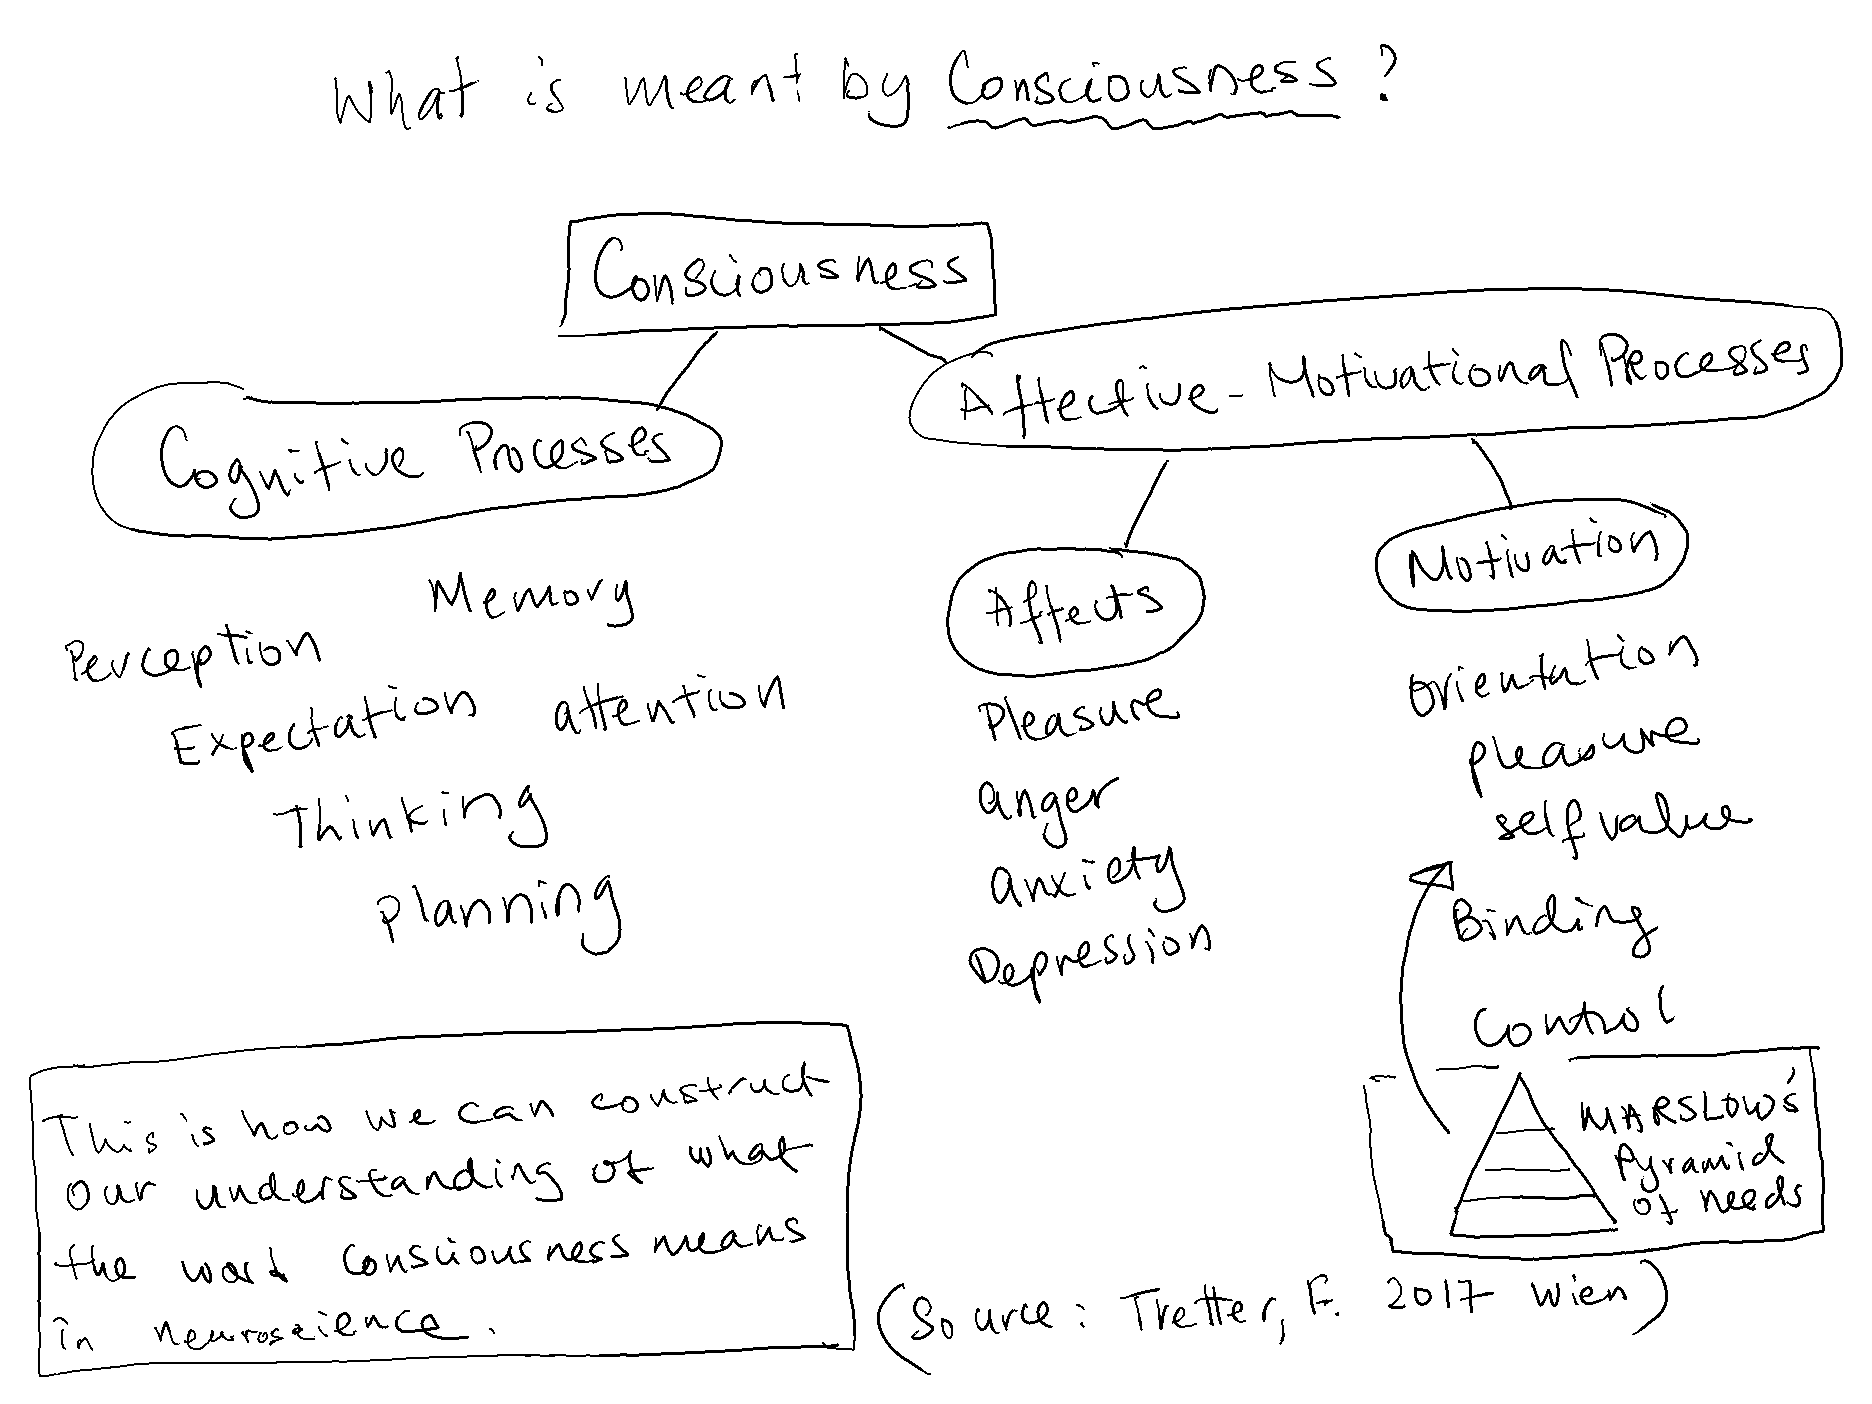 What is meant by Consciousness?
Consciousness
Cognitive Processes
Affective-Motivational Processes
Memory
Perception
Expectation attention
Thinking
planning
Affects
Pleasure
anger
anxiety
Depression
Motivation
Orientation
pleasure
self value
Binding
Control
MARSLOW's
Pyramid
of needs
This is how we can construct
our understanding of what
the word consciousness means
in neuroscience.
(Source: Tretter, F. 2017 Wien)